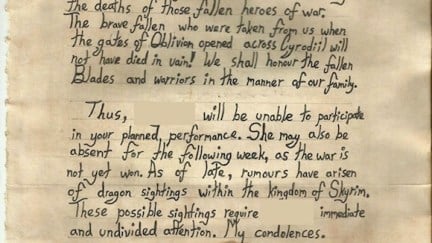 the deaths of those fallen heroes of war.
The brave fallen who were taken from us when
the gates of Oblivion opened across Cyrodiil will
not have died in vain! We shall honour the fallen
Blades and warriors in the manner of our family.
Thus, will be unable to participate
in your planned performance. She may also be
absent for the following week, as the war is
not yet won. As of late, rumours have arisen
of dragon sightings within the kingdom of Skyrim.
These possible sightings require immediate
and undivided attention. My condolences.